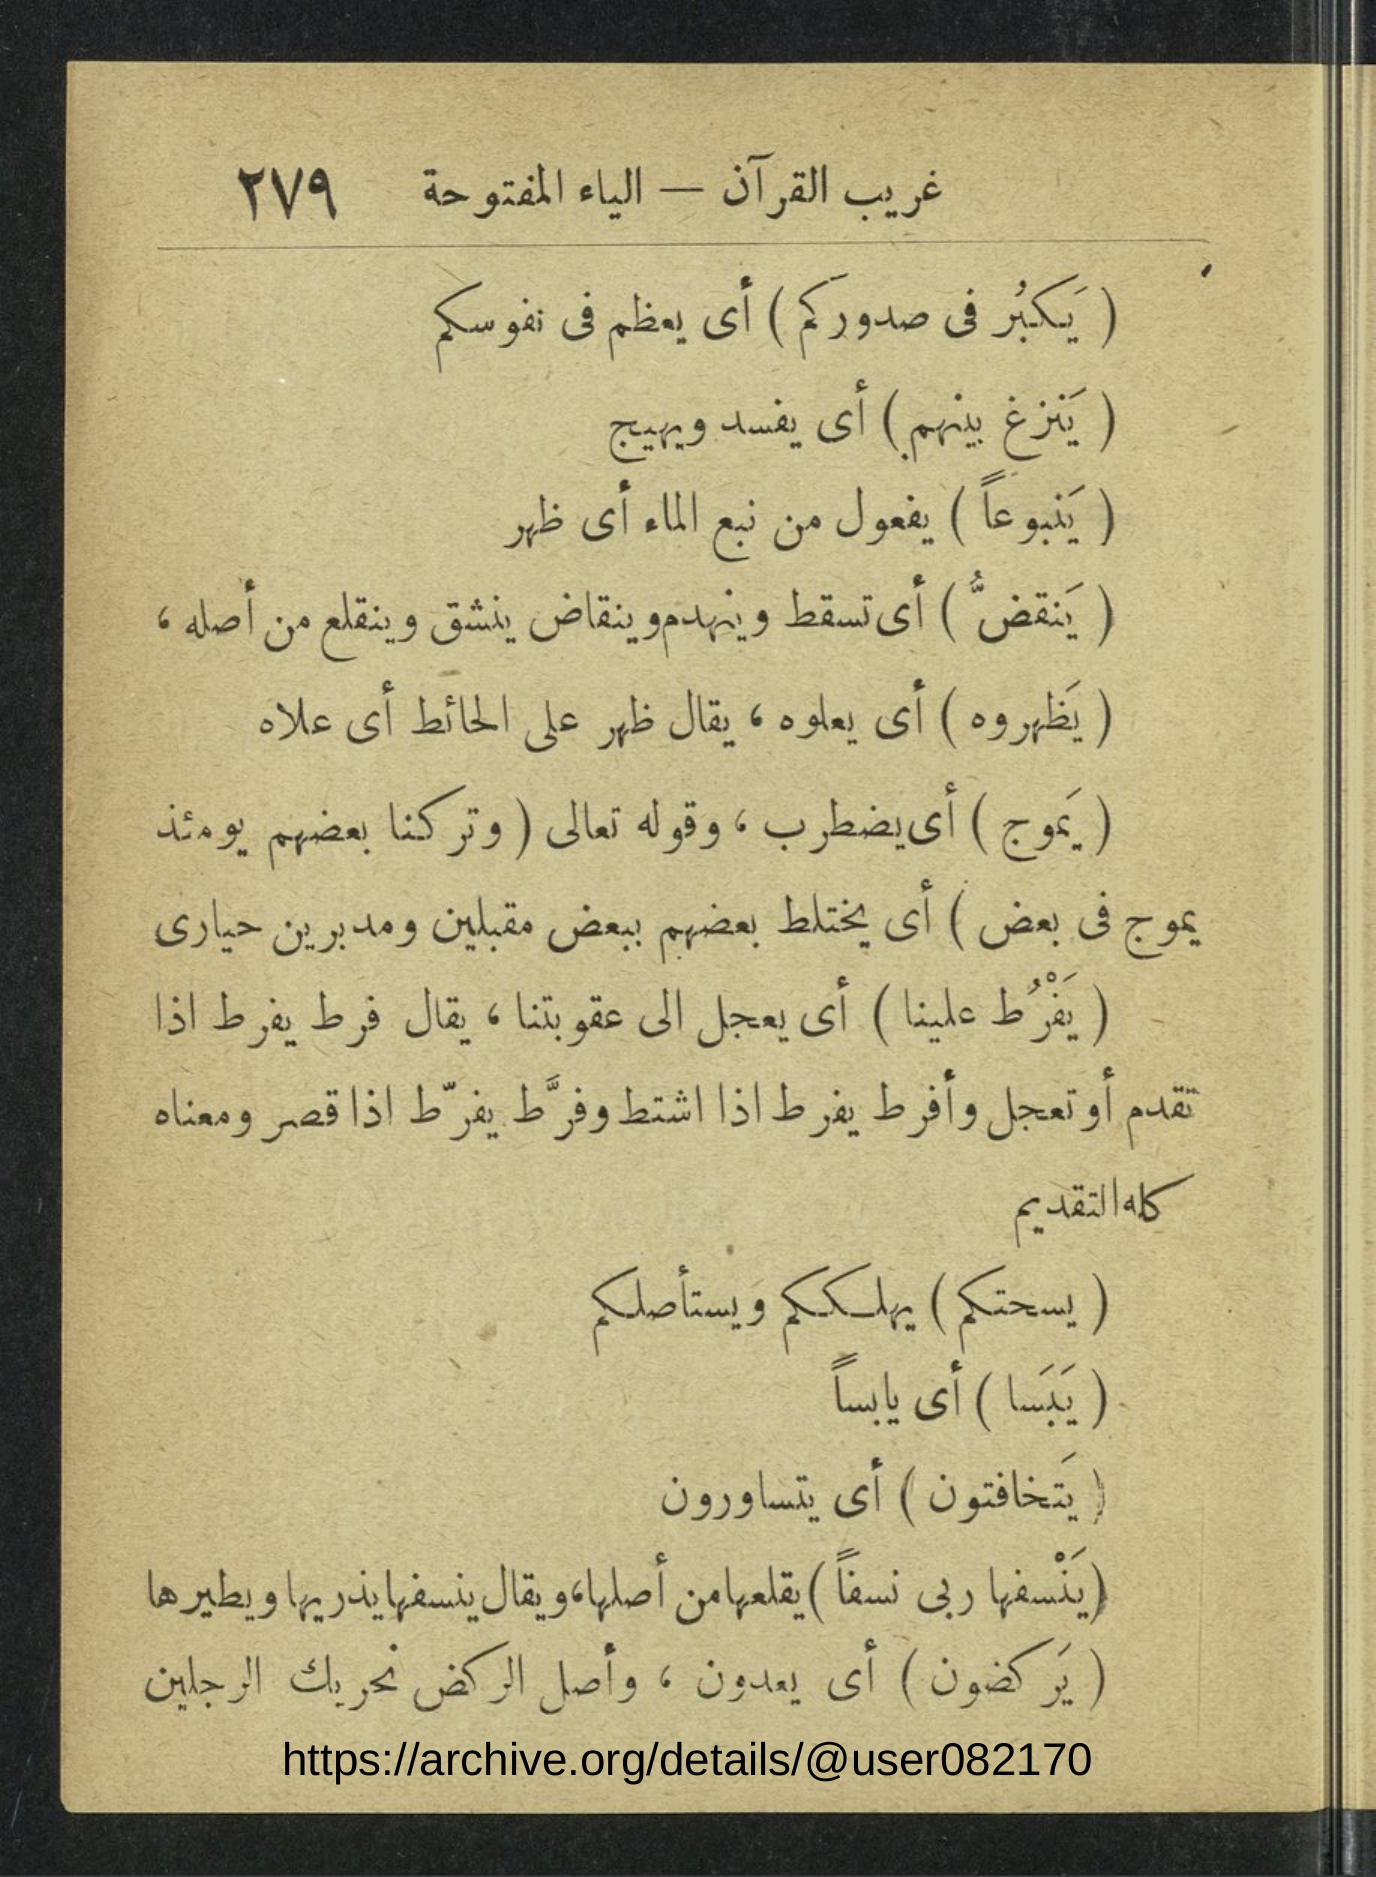 غريب القرآن — الياء المفتوحة ٢٧٩
( يَكبُر فى صدوركم ) أى يعظم فى نفوسكم
( يَنزغ بينهم ) أى يفسد ويهيج
( يَنبوعاً ) يفعول من نبع الماء أى ظهر
( يَنقضُّ ) أى تسقط وينهدم وينقاض ينشق وينقلع من أصله ،
( يَظهروه ) أى يعلوه ، يقال ظهر على الحائط أى علاه
( يَموج ) أى يضطرب ، وقوله تعالى ( وتركنا بعضهم يومئذ
يموج فى بعض ) أى يختلط بعضهم ببعض مقبلين ومدبرين حيارى
( يَفْرُط علينا ) أى يعجل الى عقوبتنا ، يقال فرط يفرط اذا
تقدم أو تعجل وأفرط يفرط اذا اشتط وفرَّط يفرّط اذا قصر ومعناه
كله التقديم
( يسحتكم ) يهلككم ويستأصلكم
( يَبَسا ) أى يابساً
( يَتخافتون ) أى يتساورون
( يَنْسفها ربى نسفاً ) يقلعها من أصلها، ويقال ينسفها يذريها ويطيرها
( يَركضون ) أى يعدون ، وأصل الركض تحريك الرجلين
https://archive.org/details/@user082170